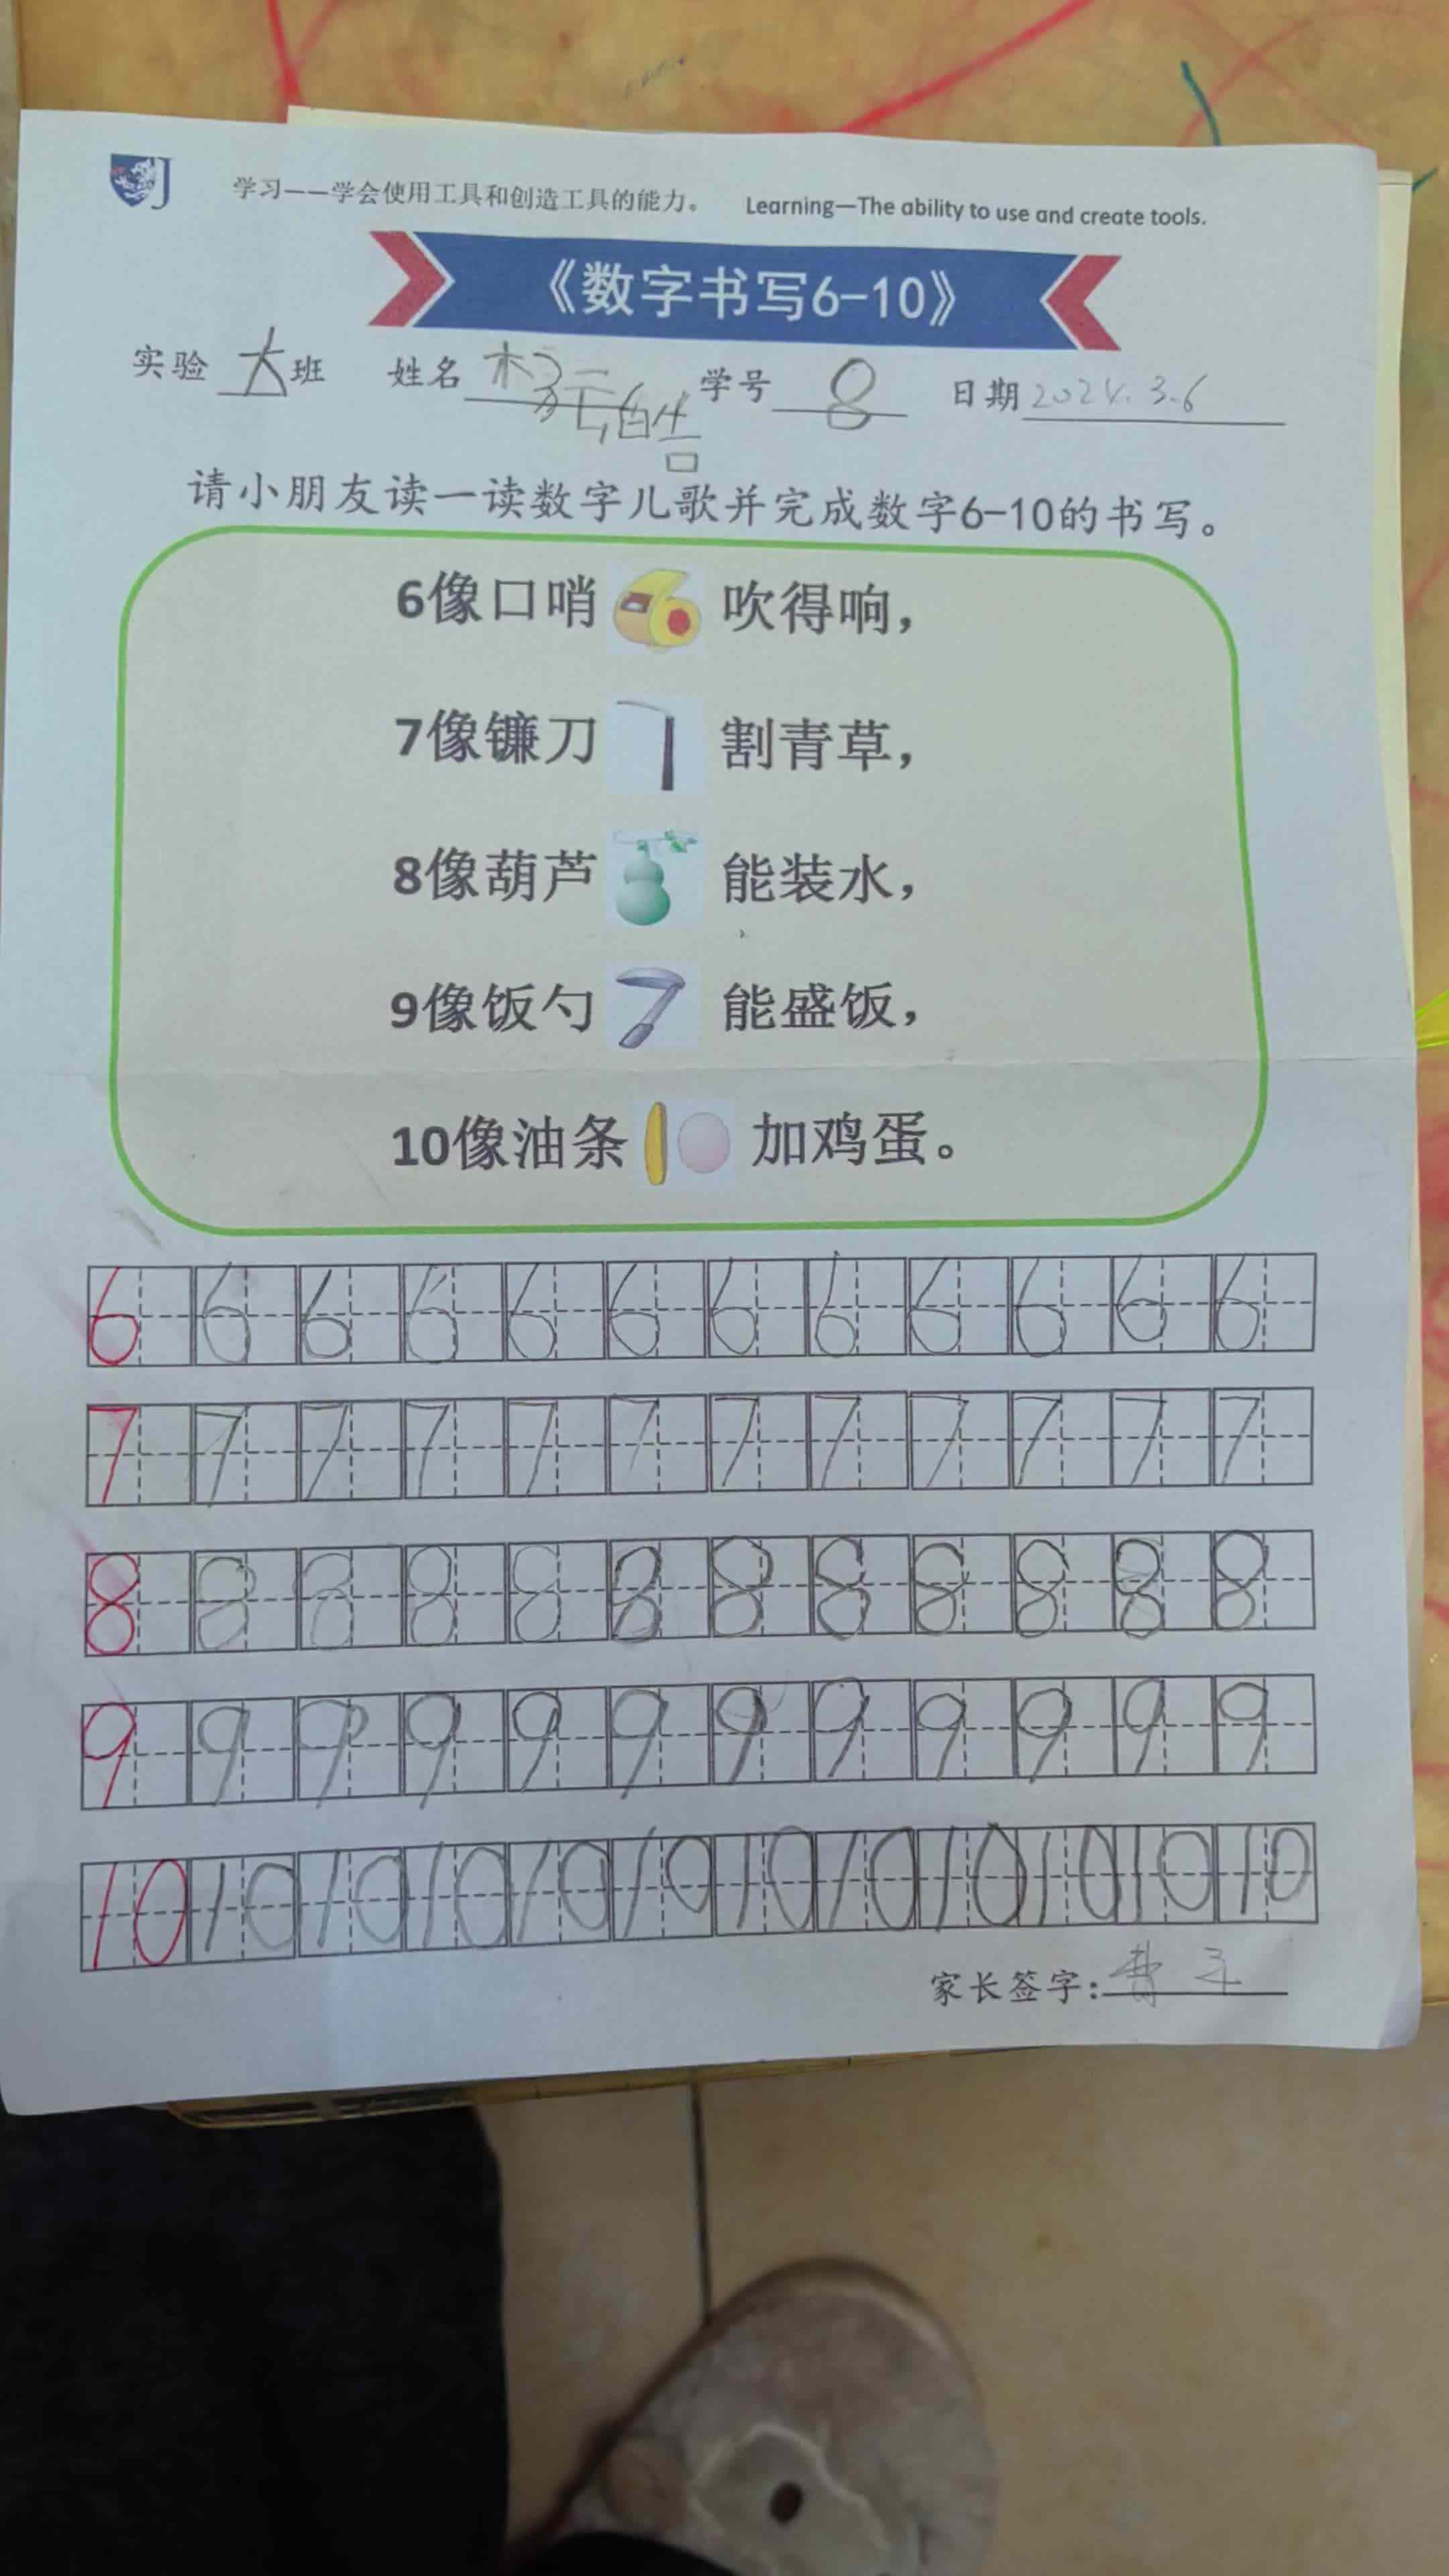 学习——学会使用工具和创造工具的能力。 Learning—The ability to use and create tools.
《数字书写6-10》
实验 大 班 姓名 杨 学号 8 日期 2024.3.6
请小朋友读一读数字儿歌并完成数字6-10的书写。
6像口哨 吹得响，
7像镰刀 割青草，
8像葫芦 能装水，
9像饭勺 能盛饭，
10像油条 加鸡蛋。
6 6 6 6 6 6 6 6 6 6 6 6
7 7 7 7 7 7 7 7 7 7 7 7
8 8 8 8 8 8 8 8 8 8 8 8
9 9 9 9 9 9 9 9 9 9 9 9
10 10 10 10 10 10 10 10 10 10 10 10
家长签字：